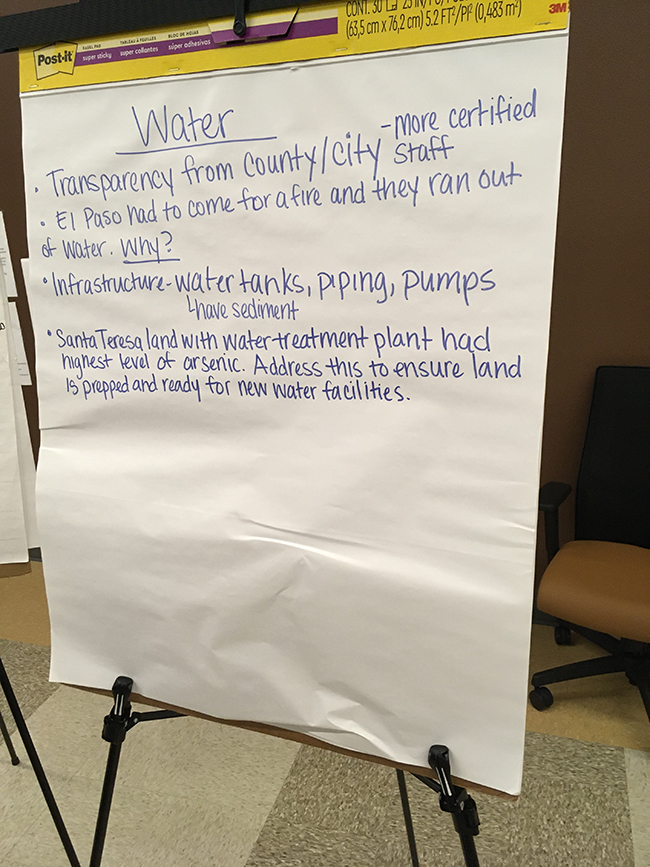 Post-it
SELF-STICK PAD
super sticky
TABLEAU À FEUILLES
super collantes
BLOC DE HOJAS
súper adhesivas
(63,5 cm x 76,2 cm) 5.2 FT²/PI² (0,483 m²)
3M
Water
- more certified
staff
• Transparency from County/city
• El Paso had to come for a fire and they ran out
of water. Why?
• Infrastructure - water tanks, piping, pumps
have sediment
• Santa Teresa land with water treatment plant had
highest level of arsenic. Address this to ensure land
is prepped and ready for new water facilities.